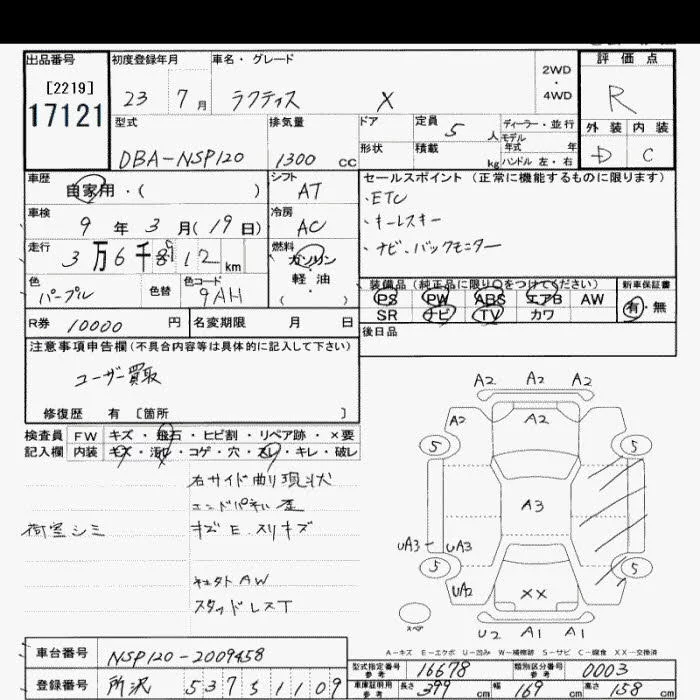 出品番号 初度登録年月 車名・グレード 2WD ・ 4WD 評価点
[2219] 17121 23 7月 ラクティス X R
型式 排気量 ドア 定員 5人 ディーラー・並行 外装 内装
モデル年式 年
DBA-NSP120 1300cc 形状 積載 kg ハンドル 左・右 D C
車歴 自家用・( ) シフト AT セールスポイント(正常に機能するものに限ります)
・ETC
車検 9年3月(19日) 冷房 AC ・キーレスキー
走行 3万6千 912km 燃料 ガソリン 軽・油 ・( ) ・ナビ・バックモニター
色 パープル 色替 色コード 9AH
装備品(純正品に限り○をつけてください) 新車保証書
PS PW ABS エアB AW 有・無
SR ナビ TV カワ
R券 10000円 名変期限 月 日 後日品
注意事項申告欄(不具合内容等は具体的に記入して下さい)
ユーザー買取
修復歴 有 [箇所 ]
検査員 FW キズ・飛石・ヒビ割・リペア跡・×要
記入欄 内装 キズ・汚れ・コゲ・穴・スレ・キレ・破レ
右サイド曲り現状
エンドパネル歪
荷室シミ キズ E.スリキズ
キュタトAW
スタッドレスT
A2 A2 A2
A2 A2
5 5
A3
UA3 UA3
5 5
UA2 XX
スペア
U2 A1 A1
A-キズ E-エクボ U-凹み W-補修跡 S-サビ C-腐食 XX-交換済
車台番号 NSP120-2009458
型式指定番号 参考 16678 類別区分番号 参考 0003
登録番号 所沢 537 す 1109
車庫証明用 参考 長さ 399cm 幅 169cm 高さ 158cm